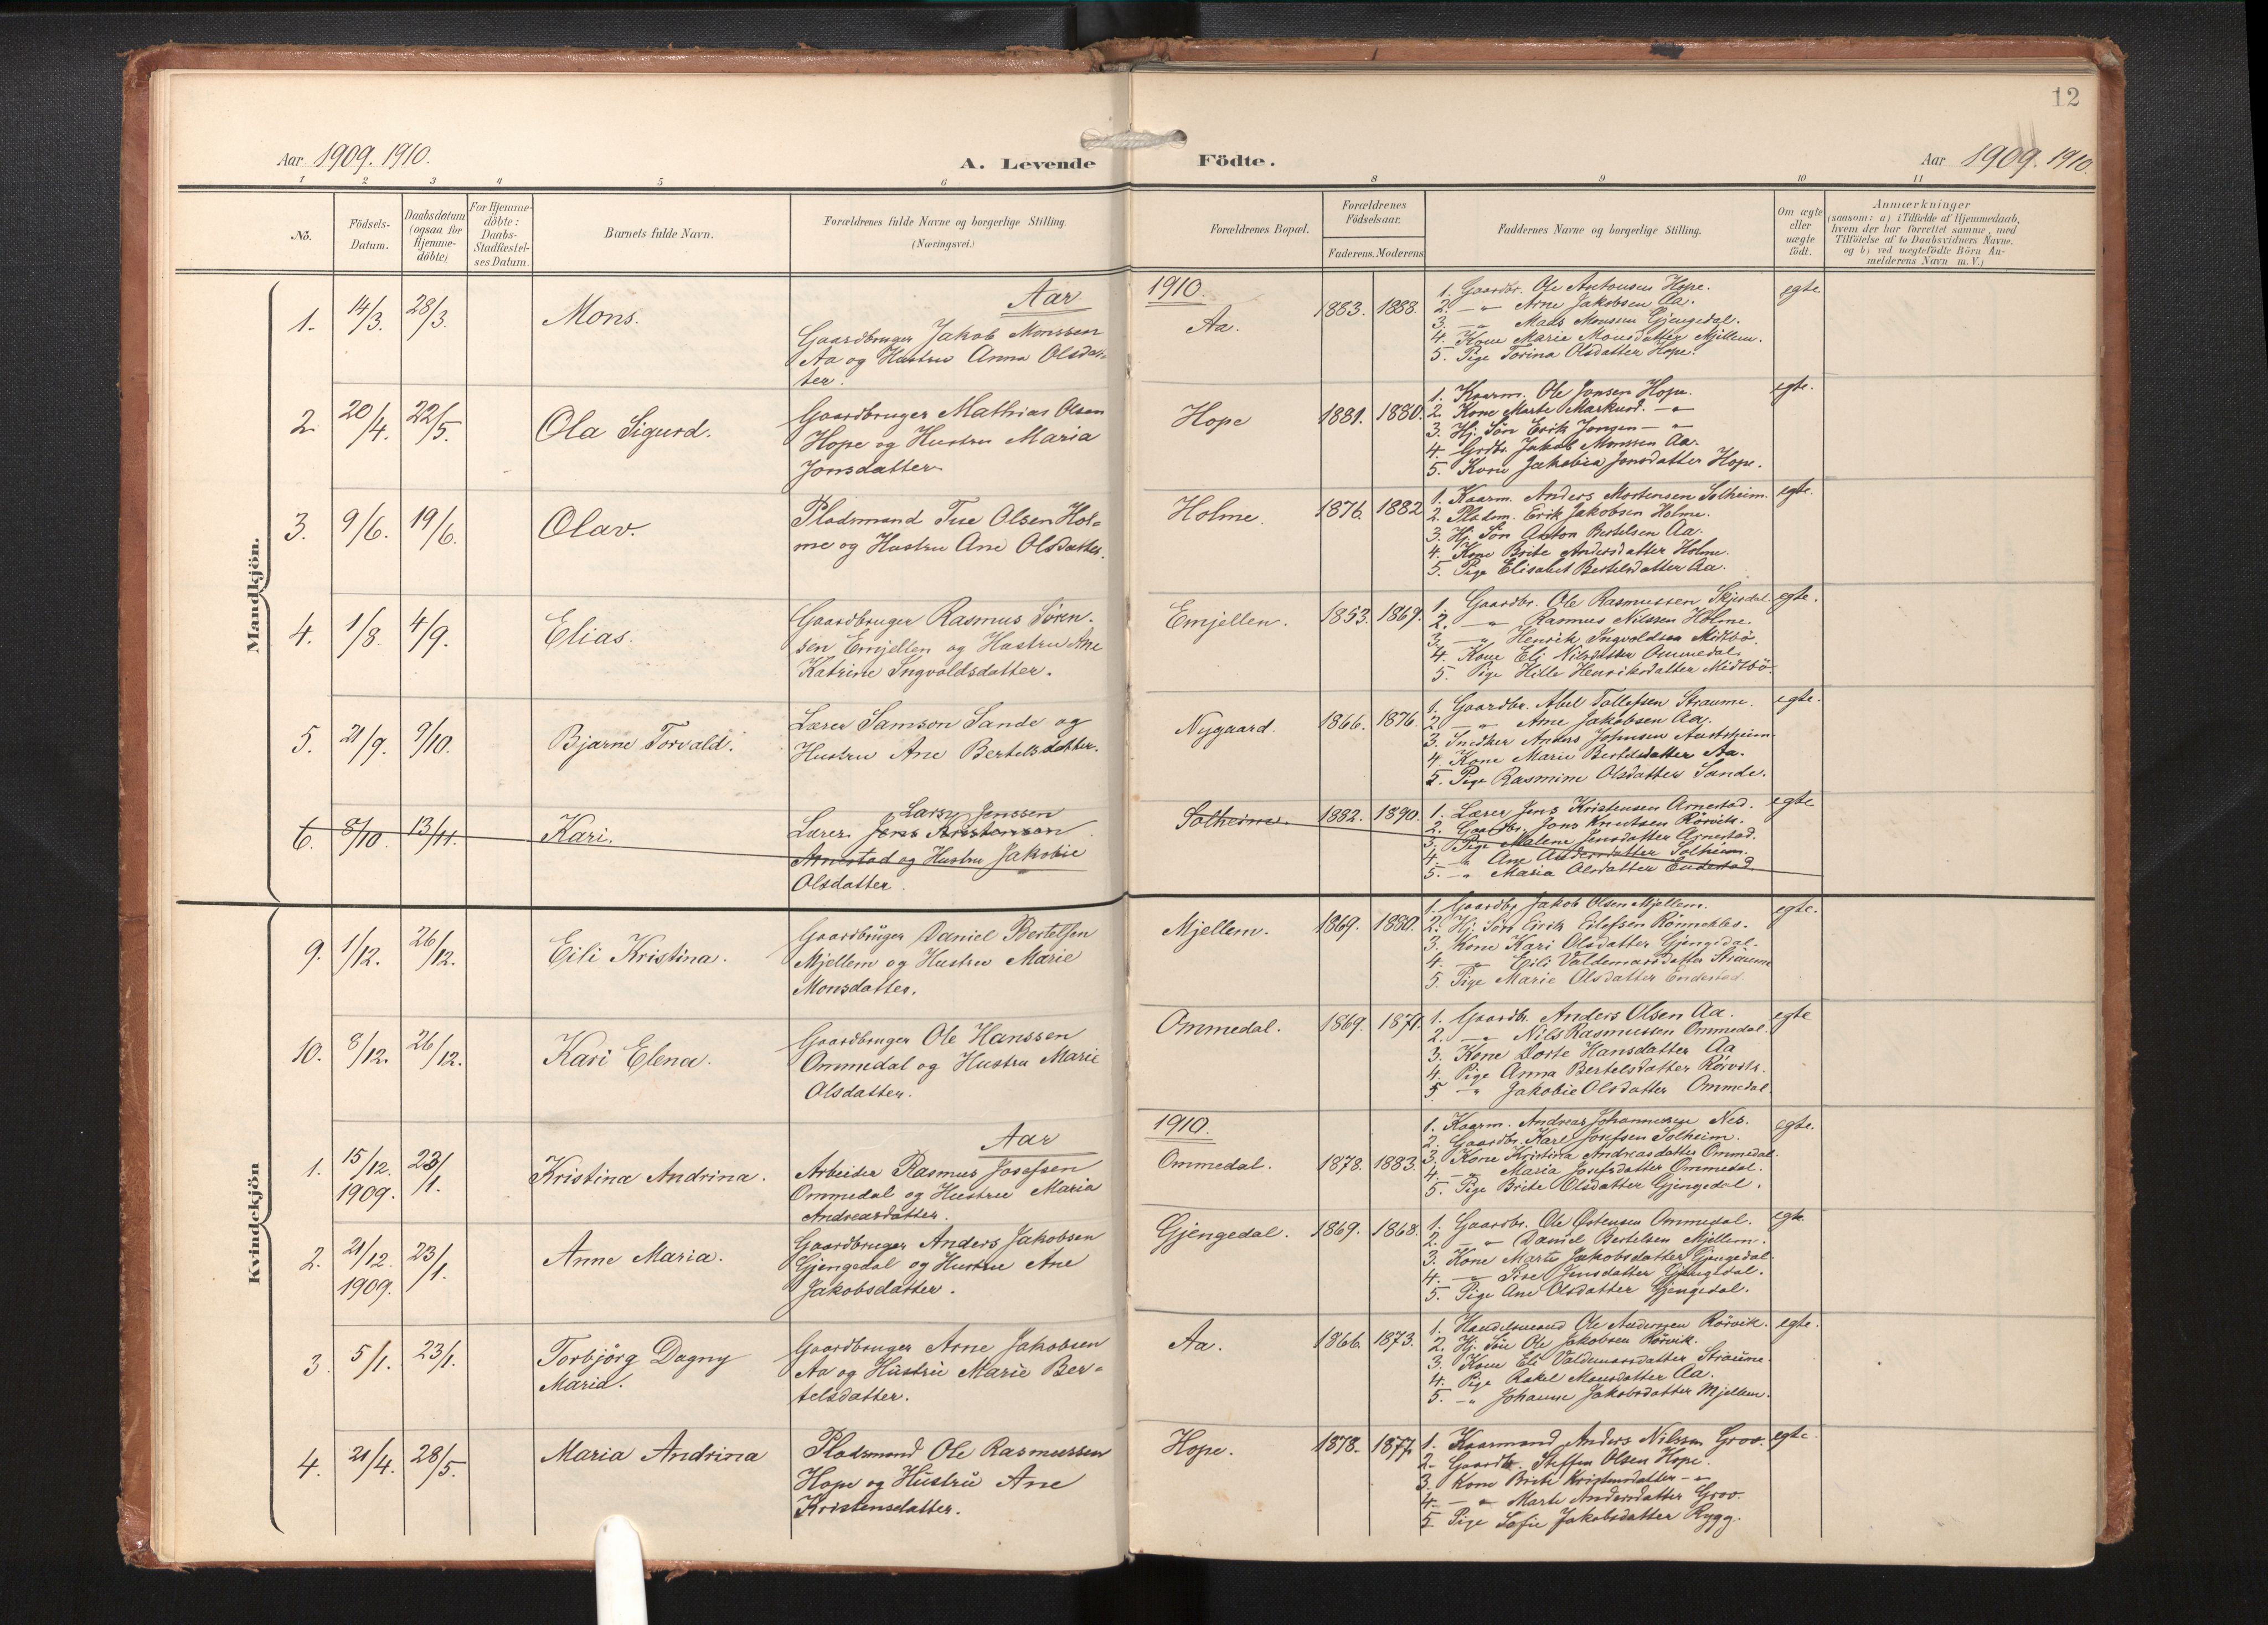 12
Aar 1909. 1910.
A. Levende Födte.
Aar 1909. 1910.
1 2 3 4 5 6 8 9 10 11
No.
Födsels-Datum.
Daabsdatum (ogsaa for Hjemme-döbte)
For Hjemme-döbte: Daabs-Stadfæstel-ses Datum.
Barnets fulde Navn.
Forældrenes fulde Navne og borgerlige Stilling.
(Næringsvei.)
Forældrenes Bopæl.
Forældrenes Födselsaar.
Faderens. Moderens.
Faddernes Navne og borgerlige Stilling.
Om ægte eller uægte födt.
Anmærkninger
(saasom: a) i Tilfælde af Hjemmedaab,
hvem der har forrettet samme, med
Tilföielse af to Daabsvidners Navne,
og b) ved uægtefödte Börn An-
melderens Navn m. V.)
Mandkjön.
Aar 1910.
1. 14/3. 28/3. Mons.
Gaardbruger Jakob Monssen
Aa og Hustru Anna Olsdat-
ter.
Aa. 1883. 1888.
1. Gaardbr. Ole Antonsen Hope.
2. — " — Arne Jakobsen Aa.
3. — " — Mads Monssen Gjengedal.
4. Kone Marie Monsdatter Mjellem.
5. Pige Torina Olsdatter Hope.
egte
2. 20/4. 22/5. Ola Sigurd.
Gaardbruger Mathias Olsen
Hope og Hustru Maria
Jonsdatter
Hope 1881. 1880.
1. Kaarm. Ole Jonsen Hope.
2. Kone Marte Markusd. — " —
3. Hj. Sön Erik Jonsen — " —
4. Grdbr. Jakob Monssen Aa.
5. Kone Jakobia Jonsdatter Hope.
egte.
3. 9/6. 19/6. Olav.
Pladsmand Tue Olsen Hol-
me og Hustru Ane Olsdatter.
Holme. 1876. 1882
1. Kaarm. Anders Mortensen Solheim.
2. Pladsm. Erik Jakobsen Holme.
3. Hj. Sön Anton Bertelsen Aa.
4. Kone Brite Andersdatter Holme.
5. Pige Elisabet Bertelsdatter Aa.
egte.
4. 1/8. 4/9. Elias.
Gaardbruger Rasmus Sören-
sen Emjellen og Hustru Ane
Katrine Ingvoldsdatter.
Emjellen. 1853. 1869.
1. Gaardbr. Ole Rasmussen Skjerdal.
2. — " — Rasmus Nilssen Holme.
3. — " — Henrik Ingvoldsen Midtbö.
4. Kone Eli Nilsdatter Ommedal.
5. Pige Hille Henriksdatter Midtbö.
egte.
5. 21/9. 9/10. Bjarne Torvald.
Lærer Samson Sande og
Hustru Ane Bertelsdatter.
Nygaard. 1866. 1876.
1. Gaardbr. Abel Tollefsen Straume.
2. — " — Arne Jakobsen Aa.
3. Snedker Anders Johnsen Austrheim.
4. Kone Marie Bertelsdatter Aa.
5. Pige Rasmine Olsdatter Sande.
egte.
6. 8/10. 13/11. Kari.
Lars Jenssen
Lærer Jens Kristensen
Arnestad og Hustru Jakobie
Olsdatter.
Solheim. 1882. 1890.
1. Lærer Jens Kristensen Arnestad.
2. Gaardbr. Jens Knutsen Rörvik.
3. Pige Malene Jensdatter Arnestad.
4. — " — Ane Andersdatter Solheim.
5. — " — Maria Olsdatter Endestad.
egte
Kvindekjön
9. 1/12. 26/12. Eili Kristina.
Gaardbruger Daniel Bertelsen
Mjellem og Hustru Marie
Monsdatter.
Mjellem. 1869. 1880.
1. Gaardbr. Jakob Olsen Mjellem.
2. Hj. Sön Eirik Eilefsen Rönnekles.
3. Kone Kari Olsdatter Gjengedal.
4. — " — Eili Valdemarsdatter Straume
5. Pige Marie Olsdatter Endestad.
egte.
10. 8/12. 26/12. Kari Elena.
Gaardbruger Ole Hanssen
Ommedal og Hustru Marie
Olsdatter.
Ommedal. 1869. 1871.
1. Gaardbr. Anders Olsen Aa.
2. — " — Nils Rasmussen Ommedal.
3. Kone Dorte Hansdatter Aa
4. Pige Anna Bertelsdatter Rörvik.
5. — " — Jakobie Olsdatter Ommedal.
egte
Aar 1910.
1. 15/12. 1909. 23/1. Kristina Andrina.
Arbeider Rasmus Josefsen
Ommedal og Hustru Maria
Andreasdatter.
Ommedal. 1878. 1883.
1. Kaarm. Andreas Johannesen Nes.
2. Gaardbr. Karl Josefsen Solheim.
3. Kone Kristina Andreasdatter Ommedal.
4. — " — Maria Josefsdatter Ommedal.
5. Pige Brite Olsdatter Gjengedal.
egte.
2. 21/12. 1909. 23/1. Anne Maria.
Gaardbruger Anders Jakobsen
Gjengedal og Hustru Ane
Jakobsdatter.
Gjengedal. 1869. 1868.
1. Gaardbr. Ole Østensen Ommedal.
2. — " — Daniel Bertelsen Mjellem.
3. Kone Marte Jakobsdatter Gjengedal.
4. — " — Sire Jensdatter Gjengedal.
5. Pige Ane Olsdatter Gjengedal.
egte
3. 5/1. 23/1. Torbjörg Dagny
Maria.
Gaardbruger Arne Jakobsen
Aa og Hustru Marie Ber-
telsdatter.
Aa. 1866. 1873.
1. Handelsmand Ole Andersen Rörvik.
2. Hj. Sön Ole Jakobsen Rörvik.
3. Kone Eli Valdemarsdatter Straume.
4. Pige Rakel Monsdatter Aa.
5. — " — Johanne Jakobsdatter Mjellem.
egte.
4. 21/4. 28/5. Maria Andrina
Pladsmand Ole Rasmussen
Hope og Hustru Ane
Kristensdatter.
Hope. 1878. 1877.
1. Kaarmand Anders Nilssen Grov.
2. Gaardbr. Steffen Olsen Hope.
3. Kone Brite Kristensdatter — " —
4. — " — Marte Andersdatter Grov.
5. Pige Sofie Jakobsdatter Rygg.
egte.